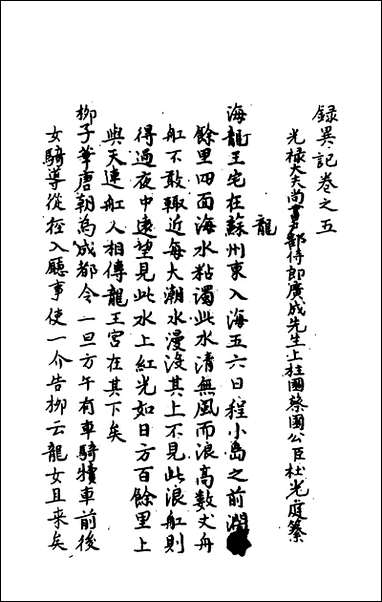 録異記卷之五
光祿大夫尚書戶部侍郎廣成先生上柱國蔡國公臣杜光庭纂
龍
海龍王宅在蘇州東入海五六日程小島之前濶
餘里四面海水粘濁此水清無風而浪高數丈舟
舡不敢輙近每大潮水漫沒其上不見此浪舡則
得過夜中遠望見此水上紅光如日方百餘里上
與天連舡人相傳龍王宮在其下矣
柳子華唐朝為成都令一旦方午有車騎犢車前後
女騎導從徑入廳事使一介告柳云龍女且來矣